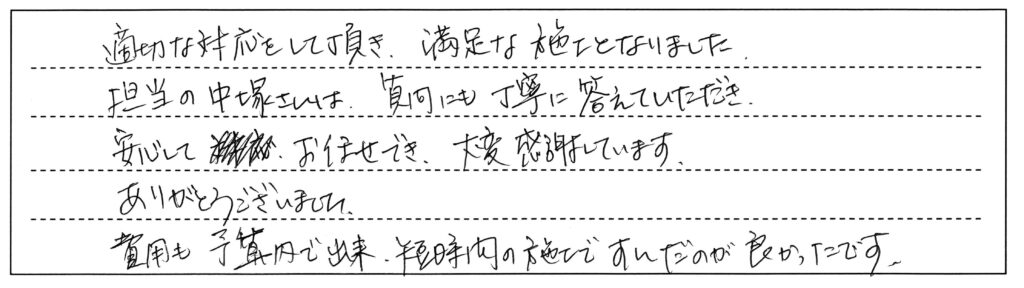 適切な対応をして頂き、満足な施工となりました。
担当の中塚さんは、質問にも丁寧に答えていただき、
安心して お任せでき、大変感謝しています。
ありがとうございました。
費用も予算内で出来、短時間の施工ですんだのが良かったです。